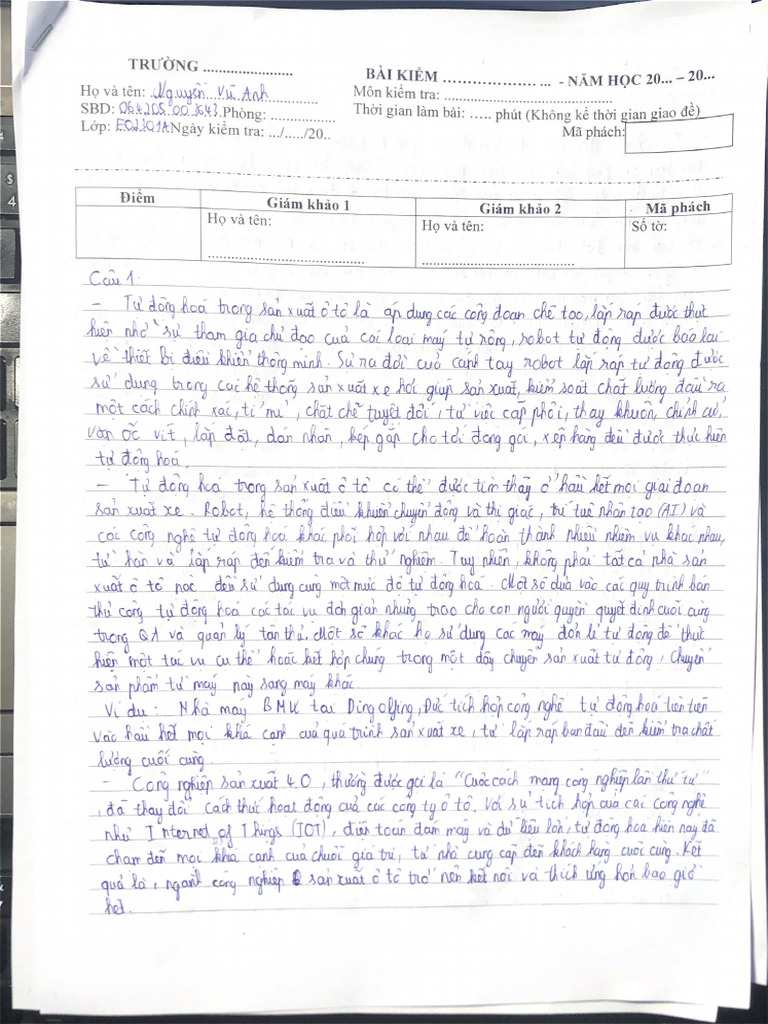 TRƯỜNG ......................
BÀI KIỂM .................. ... - NĂM HỌC 20... – 20...
Họ và tên: ..Nguyễn Vũ Anh............
Môn kiểm tra: ..........................................
SBD: 064205003643.Phòng: ................
Thời gian làm bài: ..... phút (Không kể thời gian giao đề)
Lớp: EO2301A Ngày kiểm tra: .../...../20..
Mã phách:
Điểm
Giám khảo 1
Giám khảo 2
Mã phách
Họ và tên:
Họ và tên:
Số tờ:
Câu 1:
– Tự động hoá trong sản xuất ô tô là áp dụng các công đoạn chế tạo, lắp ráp được thực
hiện nhờ sự tham gia chủ đạo của các loại máy tự động, robot tự động được bao lai
về thiết bị điều khiển thông minh. Sự ra đời của cánh tay robot lắp ráp tự động được
sử dụng trong các hệ thống sản xuất xe hơi giúp sản xuất, kiểm soát chất lượng đầu ra
một cách chính xác, tỉ mỉ, chặt chẽ tuyệt đối, từ việc cấp phôi, thay khuôn, chỉnh cỡ,
vặn ốc vít, lắp đặt, dán nhãn, kẹp gắp cho tới đóng gói, xếp hàng đều được thực hiện
tự động hoá.
– Tự động hoá trong sản xuất ô tô có thể được tìm thấy ở hầu hết mọi giai đoạn
sản xuất xe. Robot, hệ thống điều khiển chuyển động và thị giác, trí tuệ nhân tạo (AI) và
các công nghệ tự động hoá khác phối hợp với nhau để hoàn thành nhiều nhiệm vụ khác nhau,
từ hàn và lắp ráp đến kiểm tra và thử nghiệm. Tuy nhiên, không phải tất cả nhà sản
xuất ô tô nào đều sử dụng cùng một mức độ tự động hoá. Một số dựa vào các quy trình bán
thủ công tự động hoá các tác vụ đơn giản nhưng trao cho con người quyền quyết định cuối cùng
trong QA và quản lý tần thủ. Một số khác họ sử dụng các máy đơn lẻ tự động để thực
hiện một tác vụ cụ thể hoặc kết hợp chúng trong một dây chuyền sản xuất tự động, chuyển
sản phẩm từ máy này sang máy khác.
Ví dụ: Nhà máy BMW tại Dingolfing, Đức tích hợp công nghệ tự động hoá tiên tiến
vào hầu hết mọi khía cạnh của quá trình sản xuất xe, từ lắp ráp ban đầu đến kiểm tra chất
lượng cuối cùng.
– Công nghiệp sản xuất 4.0, thường được gọi là "Cuộc cách mạng công nghiệp lần thứ tư"
, đã thay đổi cách thức hoạt động của các công ty ô tô. Với sự tích hợp của các công nghệ
như Internet of Things (IOT), điện toán đám mây và dữ liệu lớn, tự động hoá hiện nay đã
chạm đến mọi khía cạnh của chuỗi giá trị, từ nhà cung cấp đến khách hàng cuối cùng. Kết
quả là, ngành công nghiệp sản xuất ô tô trở nên kết nối và thích ứng hơn bao giờ
hết.